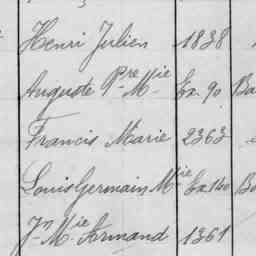 Henri Julien 1838
Auguste Pre Mie Ex. 90 Ba
Francis Marie 2363
Louis Germain Mie Ex 140 Ba
Jn Mie Armand 1361